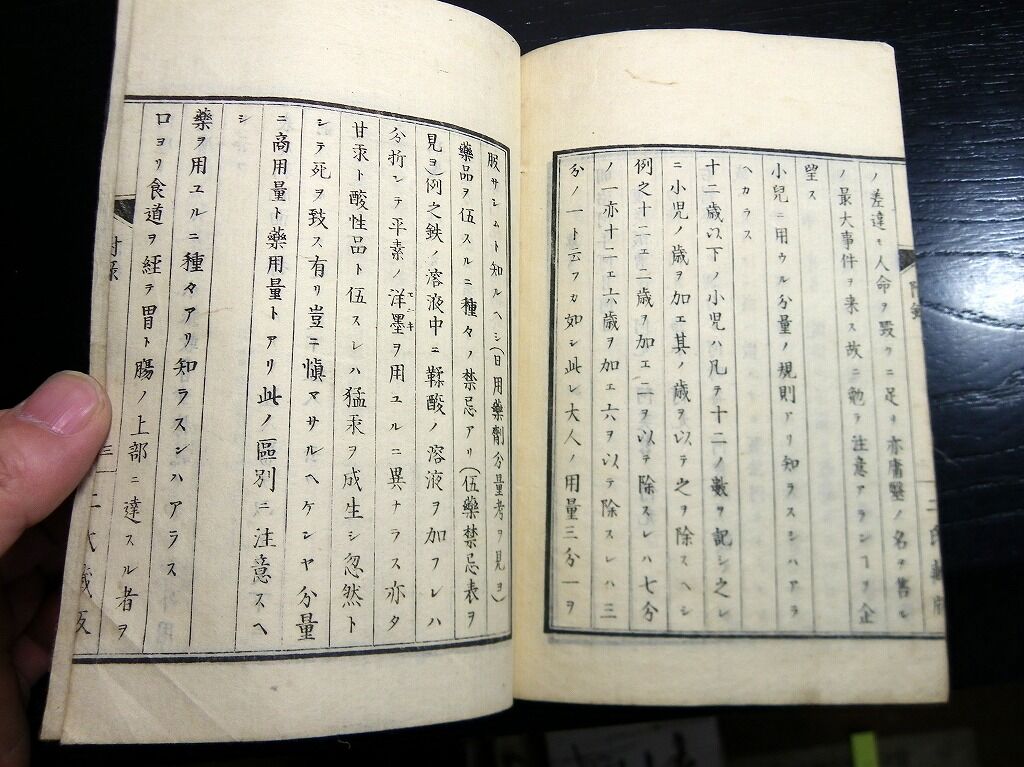 ノ差違モ人命ヲ毀クニ足リ亦庸醫ノ名ヲ售ル
ノ最大事件ヲ来ス故ニ勉テ注意アランヿヲ企
望ス
小兒ニ用ウル分量ノ規則アリ知ラスンハアラ
ヘカラス
十二歳以下ノ小児ハ凡テ十二ノ數ヲ記シ之レ
ニ小児ノ歳ヲ加エ其ノ歳ヲ以テ之ヲ除スヘシ
例之十二エ二歳ヲ加エ二ヲ以テ除スレハ七分
ノ一亦十二エ六歳ヲ加エ六ヲ以テ除スレハ三
分ノ一ト云フカ如シ此レ大人ノ用量三分一ヲ
附錄
二氏藏版
服サシムト知ルヘシ(日用藥劑分量考ヲ見ヨ)
藥品ヲ伍スルニ種々ノ禁忌アリ(伍藥禁忌表ヲ
見ヨ)例之鉄ノ溶液中ニ鞣酸ノ溶液ヲ加フレハ
分折シテ平素ノ洋墨ヲ用ユルニ異ナラス亦タ
甘汞ト酸性品ト伍スレハ猛汞ヲ成生シ忽然ト
シテ死ヲ致ス有リ豈ニ慎マサルヘケンヤ分量
ニ商用量ト藥用量トアリ此ノ區別ニ注意スヘ
シ
藥ヲ用ユルニ種々アリ知ラスンハアラス
口ヨリ食道ヲ経テ胃ト腸ノ上部ニ達スル者ヲ
附录
三
二氏藏版